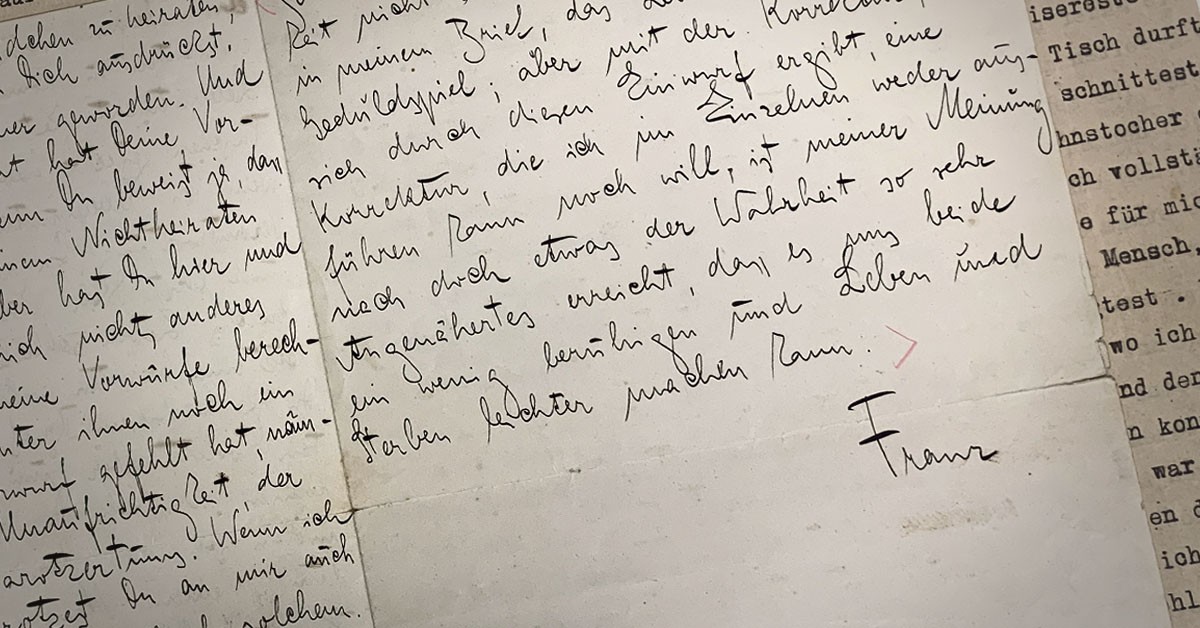 dchen zu heiraten,
Dich ausdrückst.
ner geworden. Und
hat Deine Vor-
Du beweist ja, dass
Nichtheiraten
ber hast Du hier und
nicht anderes
meine Vorwürfe berech-
nter ihnen noch ein
rwurf gefehlt hat, näm-
Unaufrichtigkeit, der
arotzertums. Wenn ich
Du an mir auch
solchem.
keit nicht
in meinem Brief, das
Geduldspiel; aber mit der Korrektur,
sich durch diesen Einwurf ergibt, eine
Korrektur, die ich im Einzelnen weder aus-
führen kann noch will, ist meiner Meinung
nach doch etwas der Wahrheit so sehr
Angenähertes erreicht, dass es uns beide
ein wenig beruhigen und Leben und
Sterben leichter machen kann.
Franz
Tisch durft
schnittest
hnstocher
ch vollstä
e für mic
Mensch,
test .
wo ich
nd der
n kon
war
en d
ich
hl